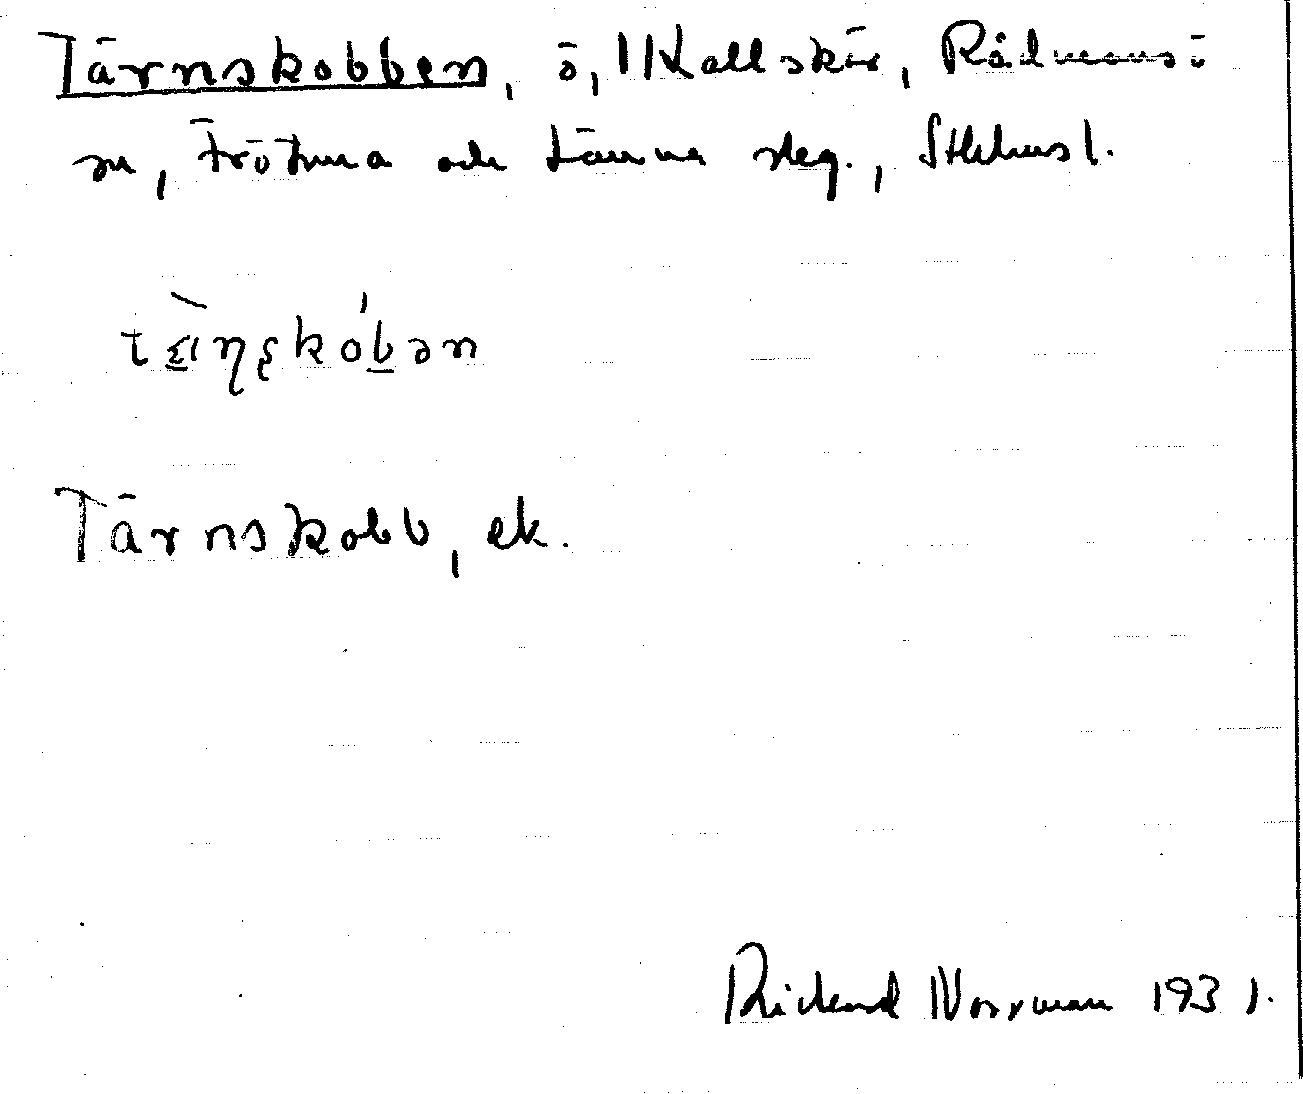 Tärnskobben, ö, Kallskär, Rådmansö
sn, Frötuna och Länna skg., Sthlms l.
Tärnskobb, ek.
Rickard Norrman 1931.